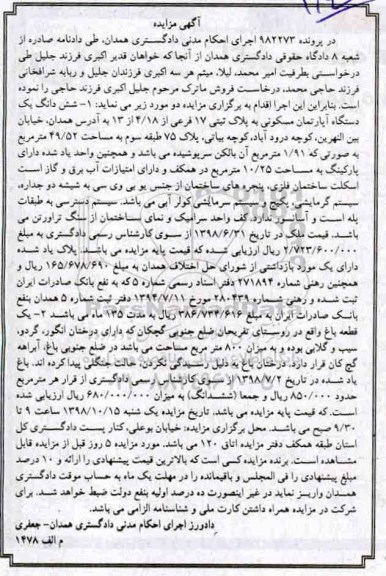 آگهی مزایده
در پرونده ۹۸۲۲۷۳ اجرای احکام مدنی دادگستری همدان، طی دادنامه صادره از
شعبه ۸ دادگاه حقوقی دادگستری همدان از آنجا که خواهان قدیر اکبری فرزند جلیل طی
درخواستی بطرفیت امیر محمد، لیلا، میثم هر سه اکبری فرزندان جلیل و ربابه شرافخانی
فرزند حاجی محمد، درخواست فروش ماترک مرحوم جلیل اکبری فرزند حاجی را نموده
است. بنابراین این اجرا اقدام به برگزاری مزایده دو مورد زیر می نماید: ۱- شش دانگ یک
دستگاه آپارتمان مسکونی به پلاک ثبتی ۱۷ فرعی از ۴/۱۸ از ۱۳ به آدرس همدان، خیابان
بین النهرین، کوچه درود آباد، کوچه بیاتی، پلاک ۷۵ طبقه سوم به مساحت ۴۹/۵۲ مترمربع
به صورتی که ۱/۹۱ مترمربع آن بالکن سرپوشیده می باشد و همچنین واحد یاد شده دارای
پارکینگ به مساحت ۱۰/۲۵ مترمربع در همکف و دارای امتیازات آب برق و گاز است
اسکلت ساختمان فلزی، پنجره های ساختمان از جنس یو پی وی سی به شیشه دو جداره،
سیستم گرمایشی پکیج و سیستم سرمایشی کولر آبی می باشد. سیستم دسترسی به طبقات
پله است و آسانسور ندارد. کف واحد سرامیک و نمای ساختمان از سنگ تراورتن می
باشد. قیمت ملک در تاریخ ۱۳۹۸/۶/۳۱ از سوی کارشناس رسمی دادگستری به مبلغ
۲/۷۲۳/۶۰۰/۰۰۰ ریال ارزیابی شده که قیمت پایه مزایده می باشد. پلاک یاد شده
دارای یک مورد بازداشتی از شورای حل اختلاف همدان به مبلغ ۱۶۵/۶۷۸/۶۹۰ ریال و
همچنین رهنی شماره ۲۷۱۸۹۴ دفتر اسناد رسمی شماره ۵ که به نفع بانک صادرات ایران
ثبت شده و رهنی شماره ۲۸۰۴۳۹ مورخ ۱۳۹۴/۷/۱۱ دفتر ثبت شماره ۵ همدان بنفع
بانک صادرات ایران به مبلغ ۳۸۶/۷۳۴/۶۱۶ ریال به مدت ۱۳۵ ماه می باشد ۲- یک
قطعه باغ واقع در روستای تفریجان ضلع جنوبی گچکان که دارای درختان انگور، گردو،
سیب و گلابی بوده و به میزان ۸۰۰ متر مربع مساحت می باشد در ضلع جنوبی باغ، آبراهه
گچ کان قرار دارد. درختان باغ به دلیل رسیدگی نکردن، حالت جنگلی پیدا کرده اند. باغ
یاد شده در تاریخ ۱۳۹۸/۷/۲ از سوی کارشناس رسمی دادگستری از قرار هر مترمربع
حدود ۸۵۰/۰۰۰ ریال و جمعا (ششدانگ) به میزان ۶۸۰/۰۰۰/۰۰۰ ریال ارزیابی شده
است. که قیمت پایه مزایده می باشد. تاریخ مزایده یک شنبه ۱۳۹۸/۱۰/۱۵ ساعت ۹ تا
۹/۳۰ صبح می باشد. محل برگزاری مزایده: خیابان بوعلی، کنار پست دادگستری کل
استان طبقه همکف دفتر مزایده اتاق ۱۲۰ می باشد. مورد مزایده ۵ روز قبل از مزایده قابل
مشاهده است. برنده مزایده کسی است که بالاترین قیمت پیشنهادی را ارائه و ۱۰ درصد
مبلغ پیشنهادی را فی المجلس و باقیمانده را در مهلت یک ماه به حساب موقت دادگستری
همدان واریز نماید در غیر اینصورت ده درصد اولیه بنفع دولت ضبط خواهد شد. برای
شرکت در مزایده همراه داشتن کارت ملی و شناسنامه الزامی می باشد.
دادورز اجرای احکام مدنی دادگستری همدان- جعفری
م الف ۱۴۷۸